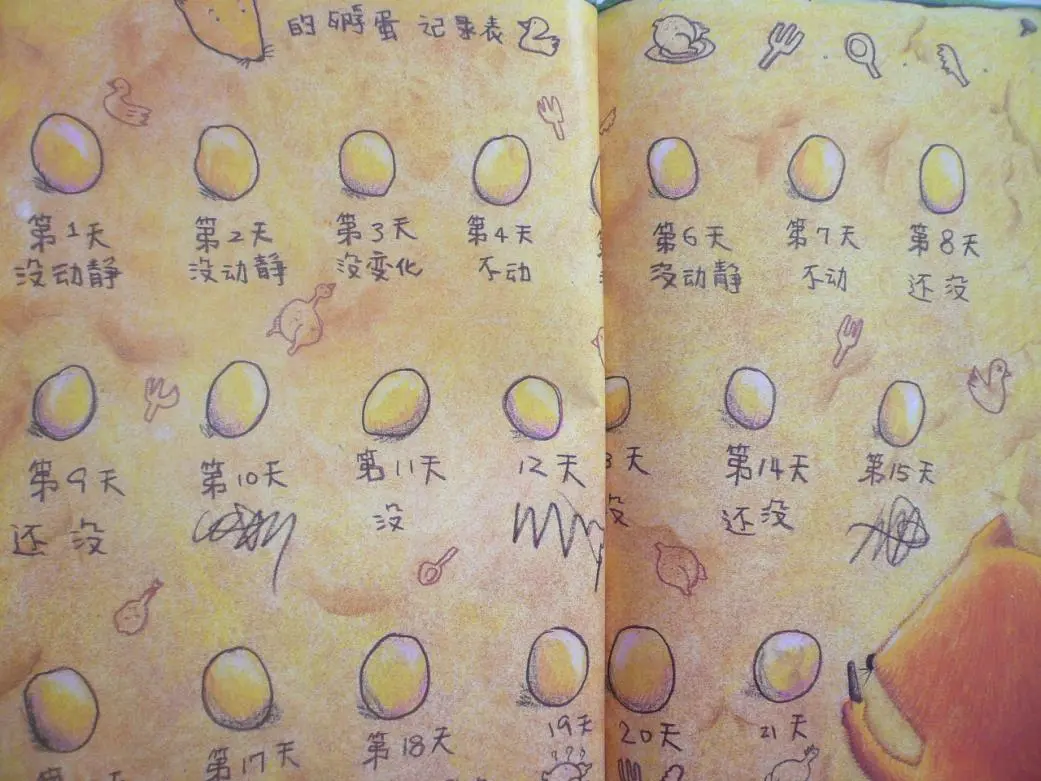 的孵蛋记录表
第1天 第2天 第3天 第4天 第6天 第7天 第8天
没动静 没动静 没变化 不动 没动静 不动 还没
第9天 第10天 第11天 12天 天 第14天 第15天
还没 没 没 还没
第17天 第18天 19天 20天 21天
???